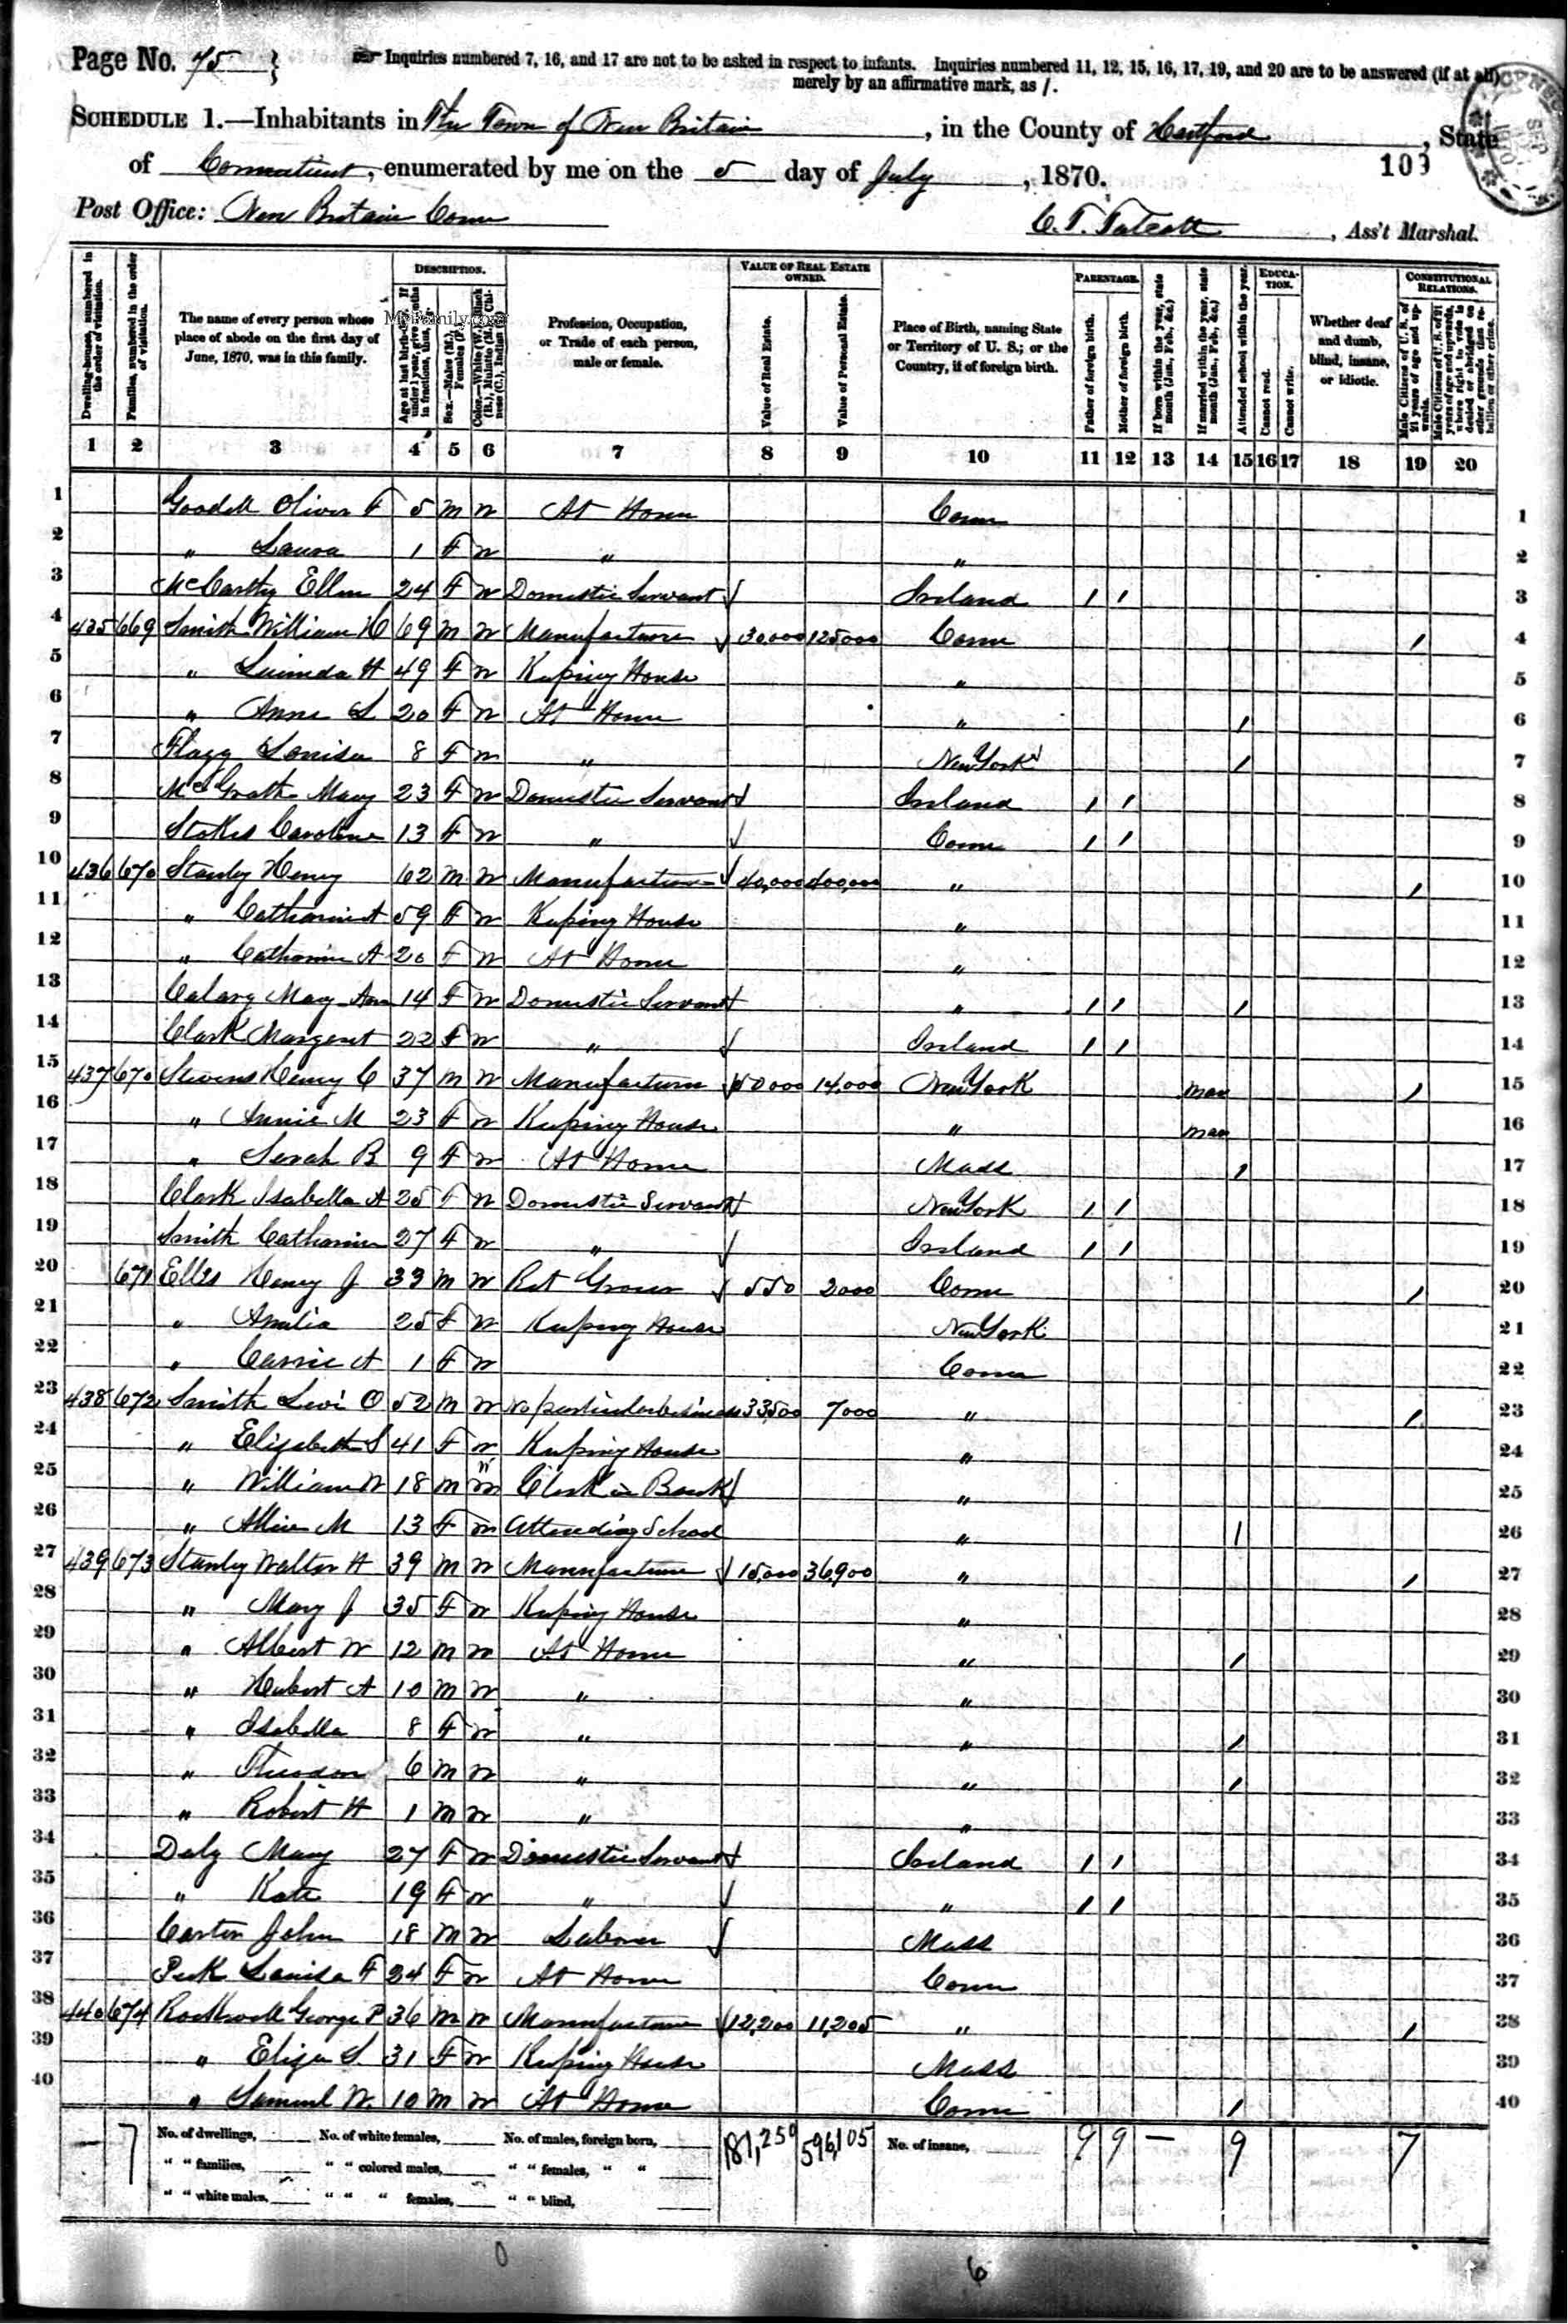 Page No. 75
Inquiries numbered 7, 16, and 17 are not to be asked in respect to infants. Inquiries numbered 11, 12, 15, 16, 17, 19, and 20 are to be answered (if at all)
merely by an affirmative mark, as /.
SCHEDULE 1.—Inhabitants in The Town of New Britain, in the County of Hartford, State
of Connecticut, enumerated by me on the 5 day of July, 1870.
103
Post Office: New Britain Conn
C. T. Talcott, Ass't Marshal.
MyFamily.com
Dwelling-houses, numbered in the order of visitation.
Families, numbered in the order of visitation.
The name of every person whose place of abode on the first day of June, 1870, was in this family.
DESCRIPTION.
Age at last birth-day. If under 1 year, give months in fractions, thus,
Sex.—Males (M.), Females (F.)
Color.—White (W.), Black (B.), Mulatto (M.), Chinese (C.), Indian
Profession, Occupation, or Trade of each person, male or female.
VALUE OF REAL ESTATE OWNED.
Value of Real Estate.
Value of Personal Estate.
Place of Birth, naming State or Territory of U. S.; or the Country, if of foreign birth.
PARENTAGE.
Father of foreign birth.
Mother of foreign birth.
If born within the year, state month (Jan., Feb., &c.)
If married within the year, state month (Jan., Feb., &c.)
Attended school within the year.
EDUCATION.
Cannot read.
Cannot write.
Whether deaf and dumb, blind, insane, or idiotic.
CONSTITUTIONAL RELATIONS.
Male Citizens of U. S. of 21 years of age and upwards.
Male Citizens of U. S. of 21 years of age and upwards, where right to vote is denied or abridged on other grounds than rebellion or other crime.
1 2 3 4 5 6 7 8 9 10 11 12 13 14 15 16 17 18 19 20
1 Goodell Oliver F 5 m w At Home Conn 1
2 " Laura 1 F w " " 2
3 McCarthy Ellen 24 F w Domestic Servant Ireland / / 3
4 435 669 Smith William H 69 m w Manufacturer 30,000 125,000 Conn / 4
5 " Lucinda H 49 F w Keeping House " 5
6 " Anne L 20 F w At Home " / 6
7 Flagg Louisa 8 F w " New York / 7
8 McGrath Mary 23 F w Domestic Servant Ireland / / 8
9 Stokes Caroline 13 F w " Conn / / 9
10 436 670 Stanley Henry 62 m w Manufacturer 40,000 400,000 " / 10
11 " Catharine A 59 F w Keeping House " 11
12 " Catharine A 20 F w At Home " 12
13 Mary Ann 14 F w Domestic Servant " / / / 13
14 Clark Margaret 22 F w " Ireland / / 14
15 437 670 Stevens Henry C 37 m w Manufacturer 50000 14,000 New York mar / 15
16 " Annie M 23 F w Keeping House " mar 16
17 " Sarah B 9 F w At Home Mass / 17
18 Clark Isabella A 25 F w Domestic Servant New York / / 18
19 Smith Catharine 27 F w " Ireland / / 19
20 671 Ellis Henry J 33 m w Ret Grocer 550 2000 Conn / 20
21 " Amelia 25 F w Keeping House New York 21
22 " Carrie A 1 F w Conn 22
23 438 672 Smith Levi O 52 m w no particular business 33,500 7000 " / 23
24 " Elizabeth S 41 F w Keeping House " 24
25 " William W 18 m w Clerk in Bank " 25
26 " Allice M 13 F w Attending School " / 26
27 439 673 Stanley Walter H 39 m w Manufacturer 15,000 36,900 " / 27
28 " Mary J 35 F w Keeping House " 28
29 " Albert W 12 m w At Home " / 29
30 " Hubert A 10 m w " " 30
31 " Isabella 8 F w " " / 31
32 " Theodore 6 m w " " / 32
33 " Robert H 1 m w " " 33
34 Daly Mary 27 F w Domestic Servant Ireland / / 34
35 " Kate 19 F w " " / / 35
36 Carter John 18 m w Laborer Mass 36
37 Peck Louisa F 24 F w At Home Conn 37
38 440 674 Rockwell George P 36 m w Manufacturer 12,200 11,205 " / 38
39 " Eliza S 31 F w Keeping House Mass 39
40 " Samuel W. 10 m w At Home Conn / 40
No. of dwellings, No. of white females, No. of males, foreign born, 181,250 596,105 No. of insane, 9 9 — 9 7
7
" " families, " " colored males, " " females, " "
" " white males, " " " females, " " blind,
0
6